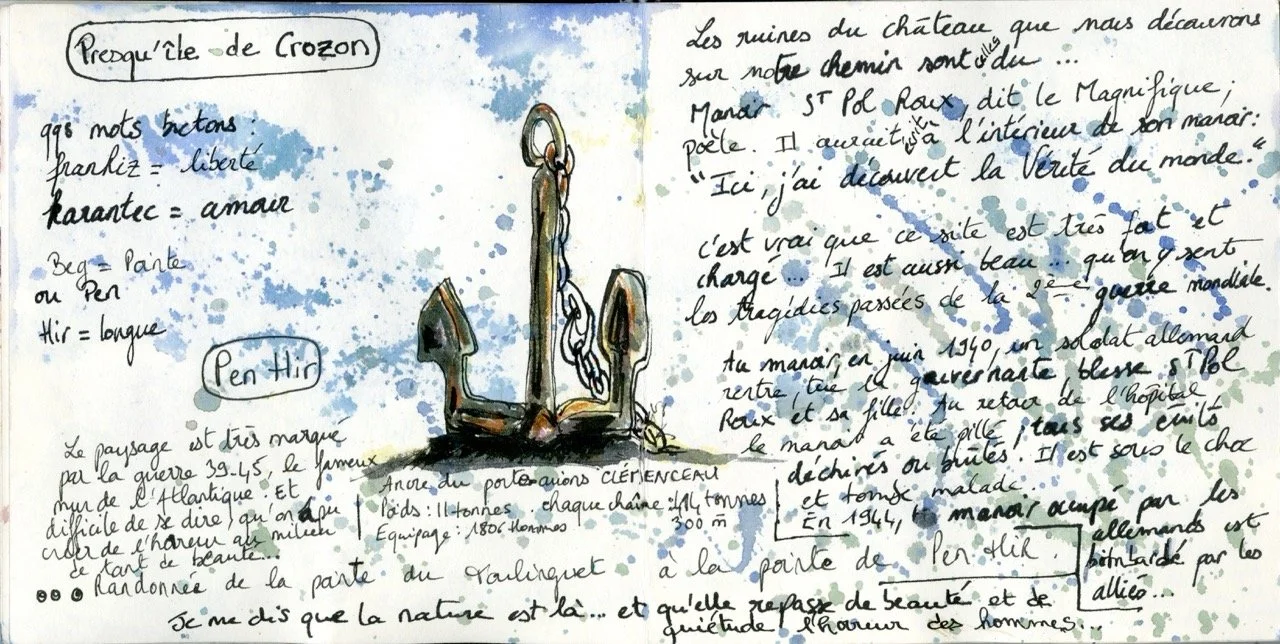 Presqu'île de Crozon
qqs mots bretons :
frankiz = liberté
karantec = amour
Beg = Pointe
ou Pen
Hir = longue
Pen Hir
Le paysage est très marqué
par la guerre 39-45, le fameux
mur de l'Atlantique. Et
difficile de se dire qu'on a pu
créer de l'horreur au milieu
de tant de beauté...
Ancre du porte-avions CLÉMENCEAU
Poids : 11 tonnes . chaque chaîne : 14 tonnes
300 m
Equipage : 1806 Hommes
Les ruines du château que nous découvrons
sur notre chemin sont celles du ...
Manoir ST Pol Roux, dit le Magnifique,
poète. Il aurait écrit à l'intérieur de son manoir :
"Ici, j'ai découvert la Vérité du monde."
c'est vrai que ce site est très fort et
chargé... Il est aussi beau ... qu'on y sent
les tragédies passées de la 2ème guerre mondiale.
Au manoir, en juin 1940, un soldat allemand
rentre, tue la gouvernante blesse ST Pol
Roux et sa fille. Au retour de l'hôpital,
le manoir a été pillé, tous ses écrits
déchirés ou brûlés. Il est sous le choc
et tombe malade.
En 1944, le manoir occupé par les
allemands est
bombardé par les
alliés...
Randonnée de la pointe du Toulinguet à la pointe de Pen Hir.
Je me dis que la nature est là... et qu'elle repasse de beauté et de
quiétude l'horreur des hommes...